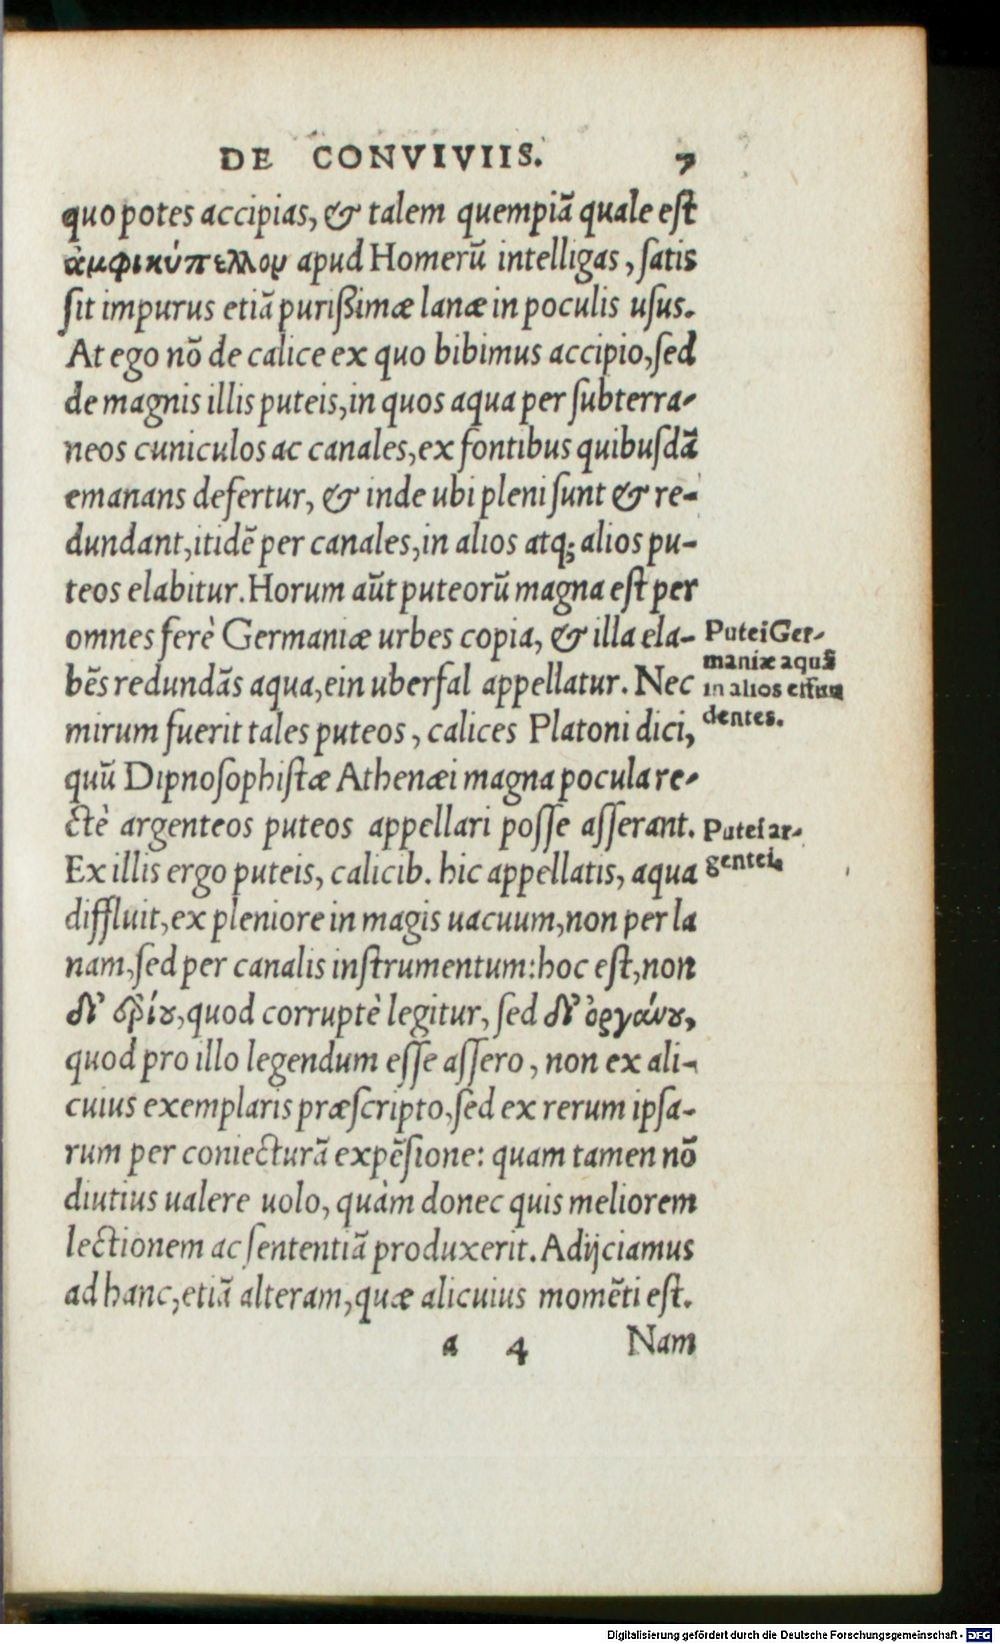 DE CONVIVIIS. 7
quo potes accipias, & talem quempiã quale est
ἀμφικύπελλον apud Homerũ intelligas, satis
sit impurus etiã purißimæ lanæ in poculis usus.
At ego nõ de calice ex quo bibimus accipio, sed
de magnis illis puteis, in quos aqua per subterra-
neos cuniculos ac canales, ex fontibus quibusdã
emanans defertur, & inde ubi pleni sunt & re-
dundant, itidẽ per canales, in alios atq; alios pu-
teos elabitur. Horum aũt puteorũ magna est per
omnes ferè Germaniæ urbes copia, & illa ela-
bẽs redundãs aqua, ein uberfal appellatur. Nec
mirum fuerit tales puteos, calices Platoni dici,
quũ Dipnosophistæ Athenæi magna pocula re-
ctè argenteos puteos appellari posse asserant.
Ex illis ergo puteis, calicib. hic appellatis, aqua
diffluit, ex pleniore in magis uacuum, non per la
nam, sed per canalis instrumentum: hoc est, non
δι' ἐρίου, quod corruptè legitur, sed δι' ὀργάνου,
quod pro illo legendum esse assero, non ex ali-
cuius exemplaris præscripto, sed ex rerum ipsa-
rum per coniecturã expẽsione: quam tamen nõ
diutius ualere uolo, quàm donec quis meliorem
lectionem ac sententiã produxerit. Adijciamus
ad hanc, etiã alteram, quæ alicuius momẽti est.
a 4 Nam
Putei Ger-
maniæ aquã
in alios effun
dentes.
Putei ar-
gentei.
Digitalisierung gefördert durch die Deutsche Forschungsgemeinschaft - DFG